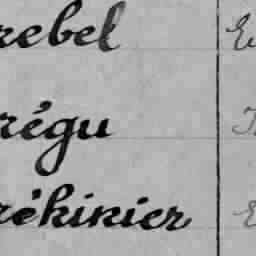 rebel
régu
rékinier